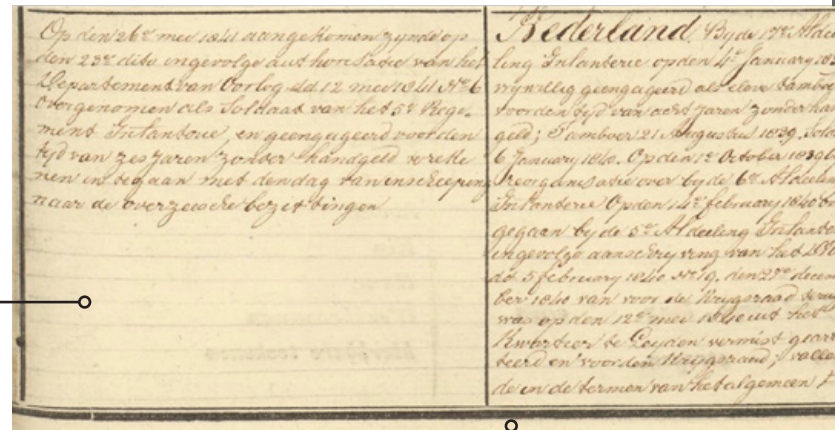 Op den 26e mei 1841 aangekomen zynde op
den 23e dito ingevolge authorisatie van het
Departement van Oorlog dd 12 mei 1841 No 6
Overgenomen als Soldaat van het 5e Rege-
ment Infanterie, en geengageerd voor den
tyd van zes jaren zonder handgeld te reke
nen in te gaan met den dag van inscheeping
naar de overzeesche bezittingen
Nederland. By de 17e Afdee
ling Infanterie op den 4e January 183
vrywillig geengageerd als eleve tamboer
voor den tyd van acht jaren zonder ha
geld; Tamboer 21 Augustus 1839. Sold
6 January 1840. Op den 1e October 1839
Reorganisatie over by de 6e Afdeelin
Infanterie Op den 14e february 1840
gegaan by de 5e Afdeeling Infante
ingevolge aanschryving van het
dd 5 february 1840 No 19. den 27e decem
ber 1840 van voor de Krygsraad teru
was op den 12e mei 1840 uit het
Kwartier te Leyden vermist gearr
teerd en voor den Krygsraad; valle
de in de termen van het algemeen